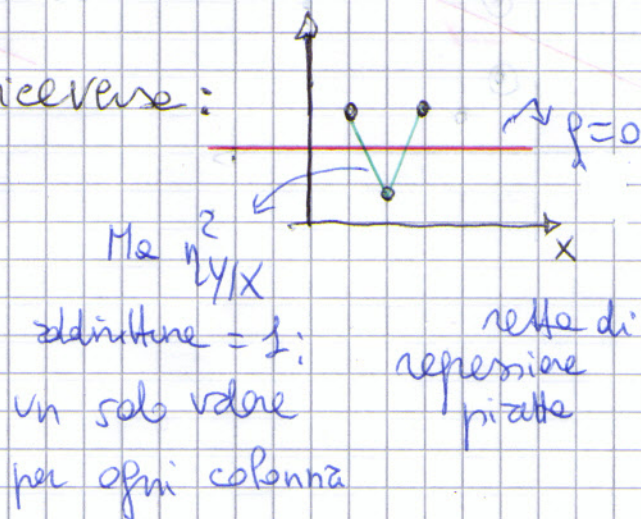 iceversa:
ρ=0
X
Ma η²Y/X
addirittura = 1:
un solo valore
per ogni colonna
retta di
regressione
piatta